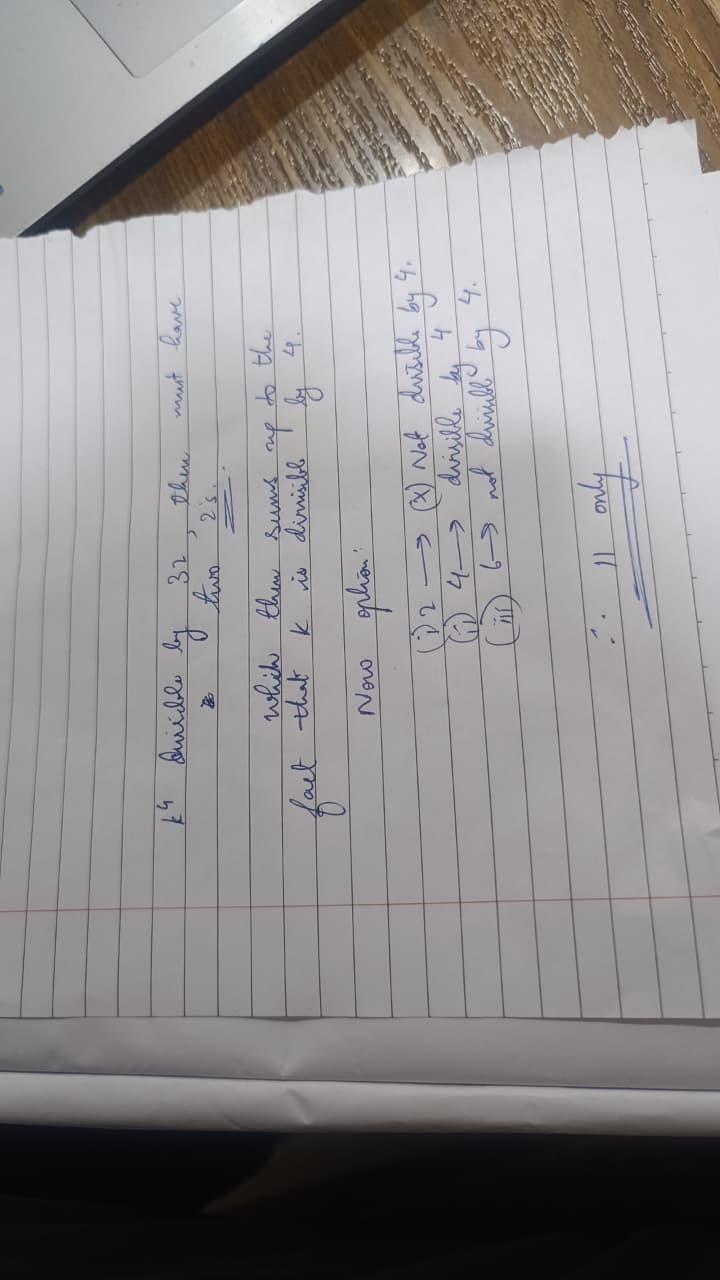 k⁴ divisible by 32, then must have
two 2's.
which then sums up to the
fact that k is divisible by 4.
Now option:
(i) 2 → (x) Not divisible by 4.
(ii) 4 → divisible by 4
(iii) 6 → not divisible by 4.
∴ 11 only